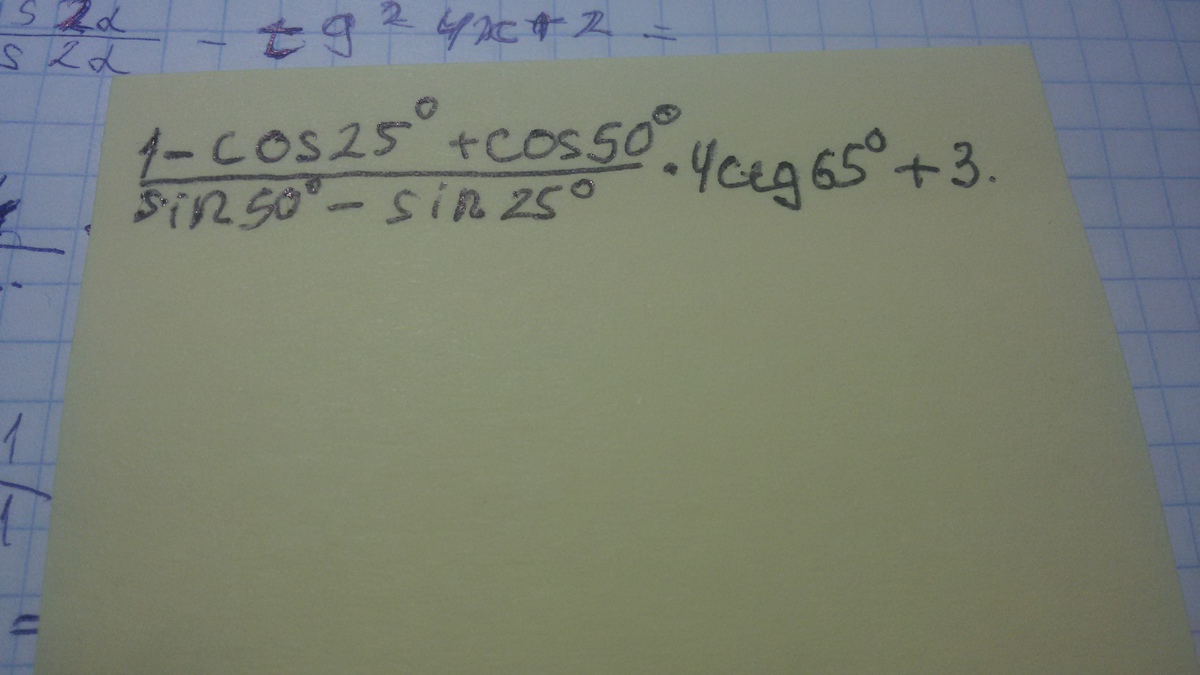 s 2α
s 2α - tg² 4x + 2 =
1 - cos 25° + cos 50°
sin 50° - sin 25° · 4ctg 65° + 3.
1
1
=